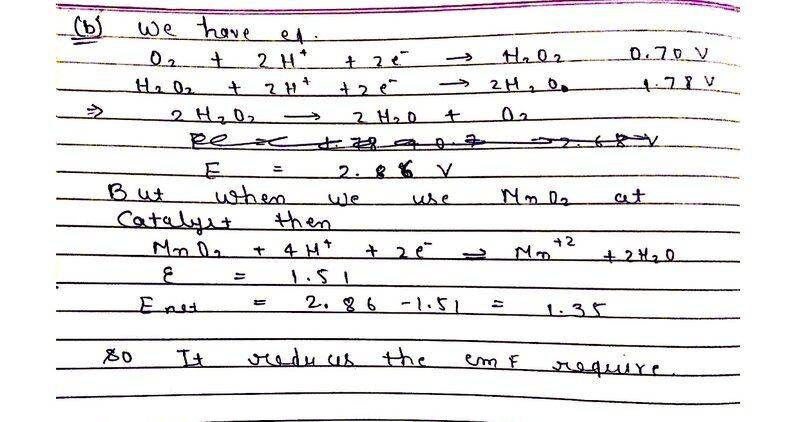 (b) We have eq.
O₂ + 2H⁺ + 2e⁻ → H₂O₂ 0.70 V
H₂O₂ + 2H⁺ + 2e⁻ → 2H₂O 1.78 V
⇒ 2H₂O₂ → 2H₂O + O₂
E = 2.86 V
But when we use MnO₂ at
Catalyst then
MnO₂ + 4H⁺ + 2e⁻ = Mn⁺² + 2H₂O
E = 1.51
E net = 2.86 - 1.51 = 1.35
So It reduces the emf require.